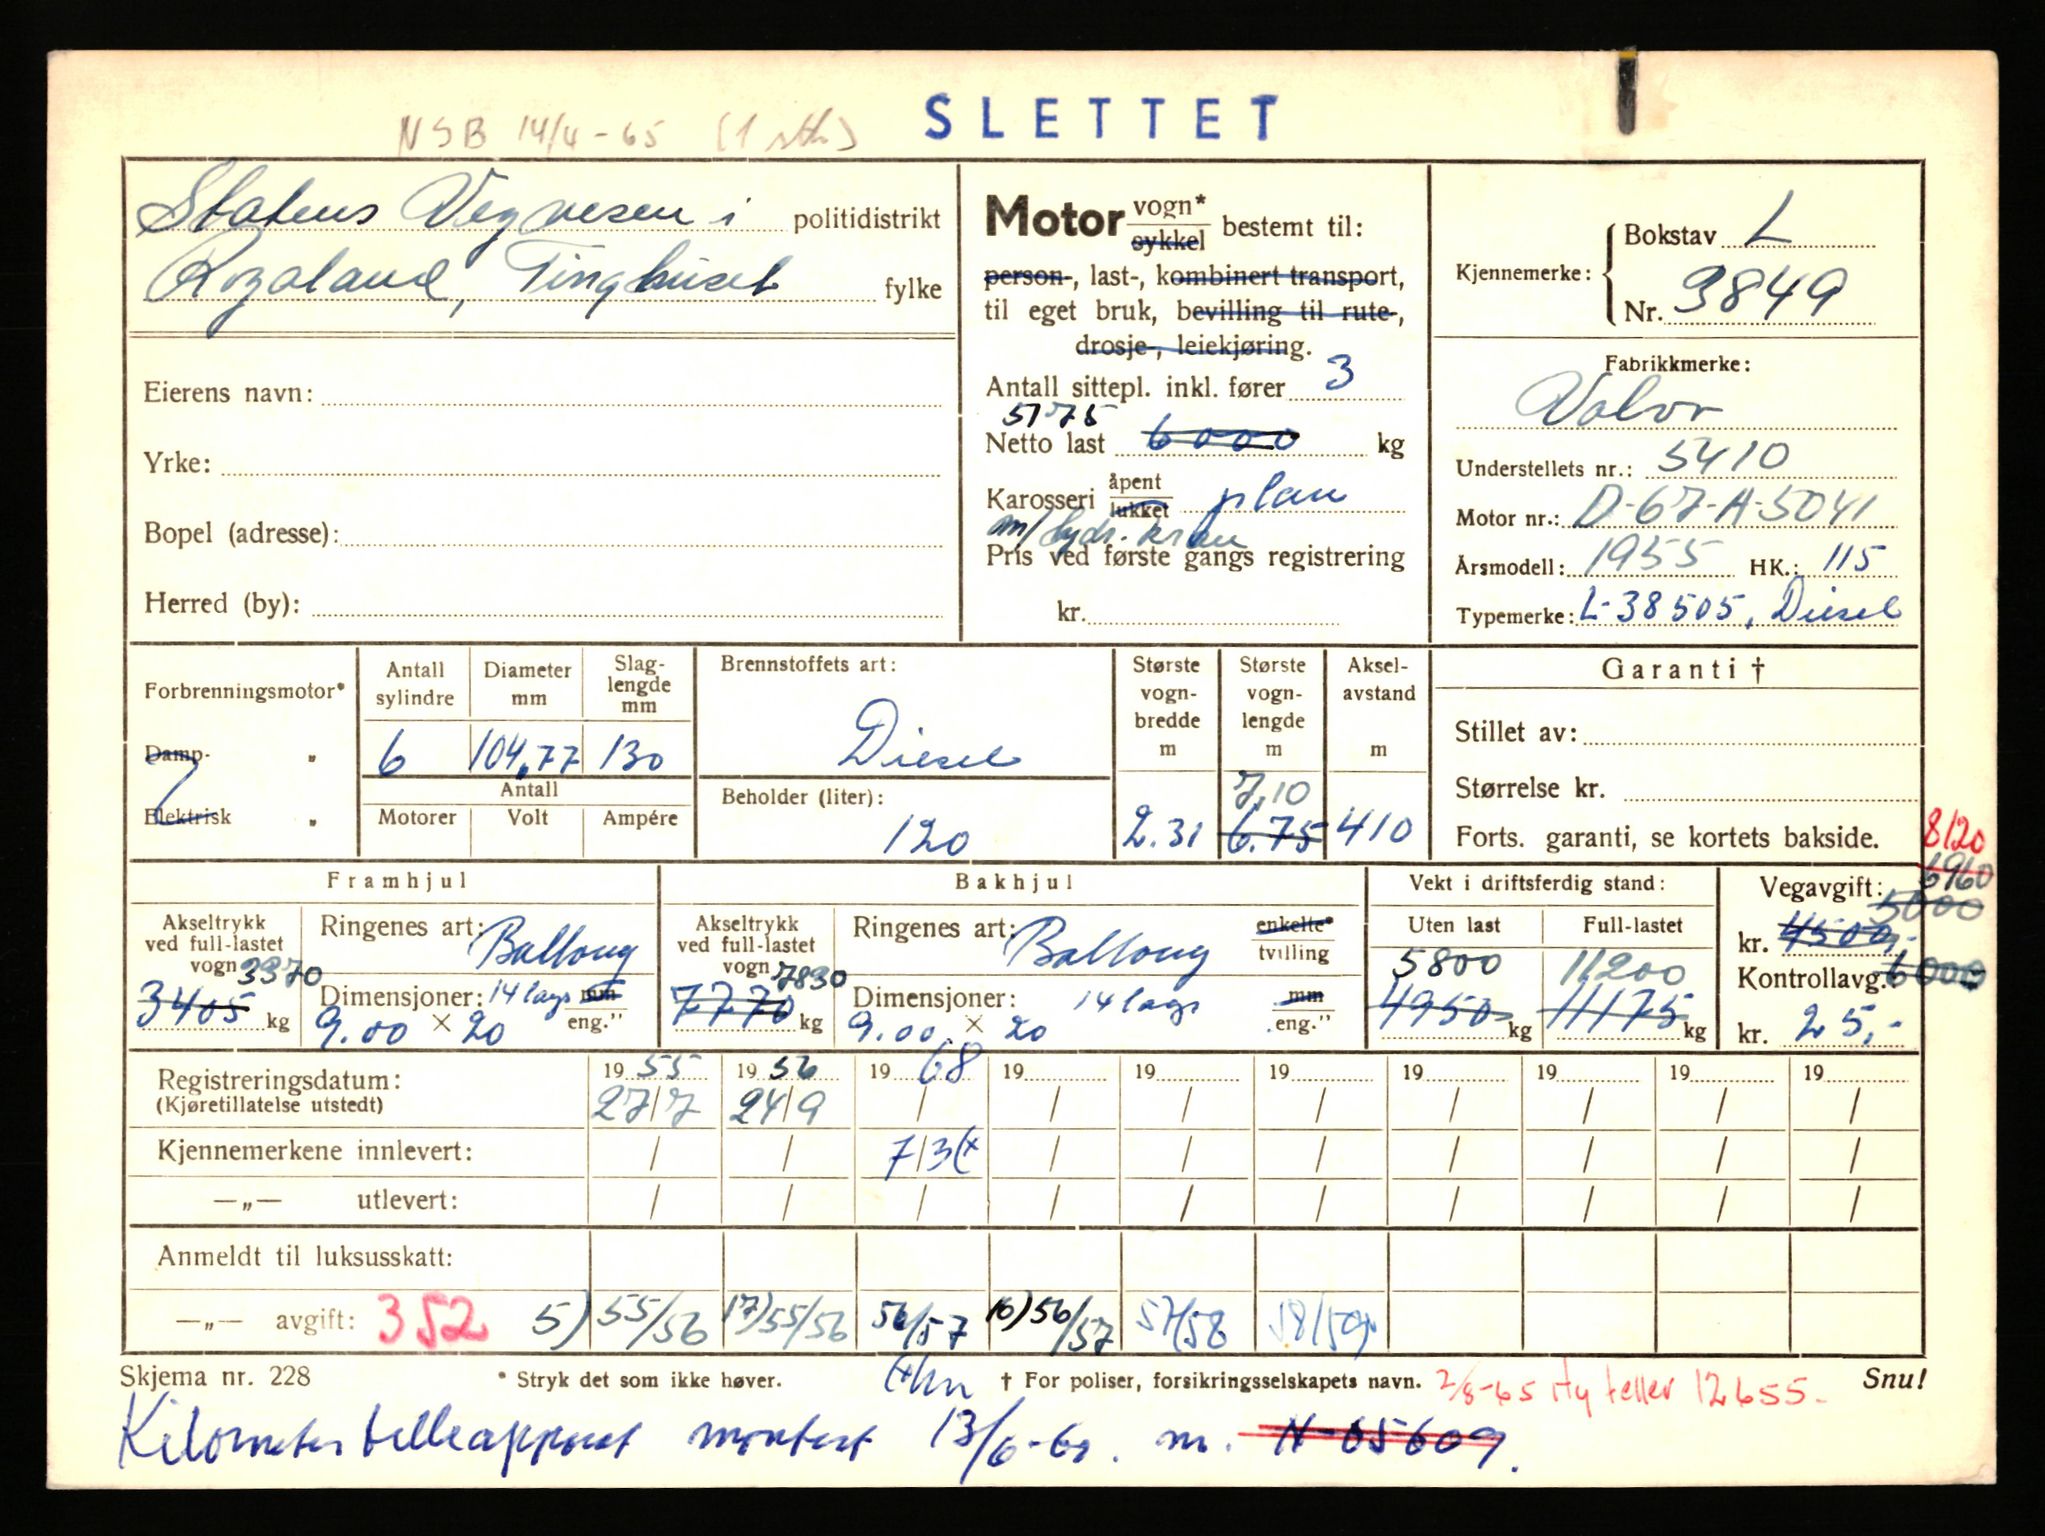 NSB 14/4-65 (1 stk)
SLETTET
Statens Vegvesen i politidistrikt
Rogaland, Tinghuset fylke
Eierens navn:
Yrke:
Bopel (adresse):
Herred (by):
Motor vogn* sykkel bestemt til:
person-, last-, kombinert transport,
til eget bruk, bevilling til rute-,
drosje-, leiekjøring.
Antall sittepl. inkl. fører 3
5175
Netto last 6000 kg
Karosseri åpent lukket plan
m/hydr. kran
Pris ved første gangs registrering
kr.
Kjennemerke: Bokstav L
Nr. 9849
Fabrikkmerke:
Volvo
Understellets nr.: 5410
Motor nr.: D-67-A-5041
Årsmodell: 1955 HK.: 115
Typemerke: L-38505, Diesel
Forbrenningsmotor*
Damp- „
Elektrisk „
Antall sylindre Diameter mm Slag-lengde mm
6 104,77 130
Antall
Motorer Volt Ampére
Brennstoffets art:
Diesel
Beholder (liter):
120
Største vogn-bredde m Største vogn-lengde m Aksel-avstand m
7,10
2.31 6.75 410
Garanti †
Stillet av:
Størrelse kr.
Forts. garanti, se kortets bakside.
8120
6960
Framhjul
Akseltrykk ved full-lastet vogn 3370
3405 kg
Ringenes art: Ballong
Dimensjoner: 14 lags mm
9.00 × 20 eng."
Bakhjul
Akseltrykk ved full-lastet vogn 7830
7770 kg
Ringenes art: Ballong enkelte* tvilling
Dimensjoner: 14 lags mm
9.00 × 20 eng."
Vekt i driftsferdig stand:
Uten last Full-lastet
5800 11200
4950 kg 11175 kg
Vegavgift: 5000
kr. 4500,-
Kontrollavg.: 6000
kr. 25,-
Registreringsdatum: 19 55 19 56 19 68 19 19 19 19 19 19 19
(Kjøretillatelse utstedt) 27/7 24/9 / / / / / / / /
Kjennemerkene innlevert: / / 7/3 (* / / / / / / /
—„— utlevert: / / / / / / / / / /
Anmeldt til luksusskatt:
—„— avgift: 352 5) 55/56 17) 55/56 56/57 10) 56/57 57/58 58/59
Skjema nr. 228 * Stryk det som ikke høver. † For poliser, forsikringsselskapets navn. 2/8-65 Ny teller 12655. Snu!
Kilometertelleapparat montert 13/6-60. nr. N-05609.